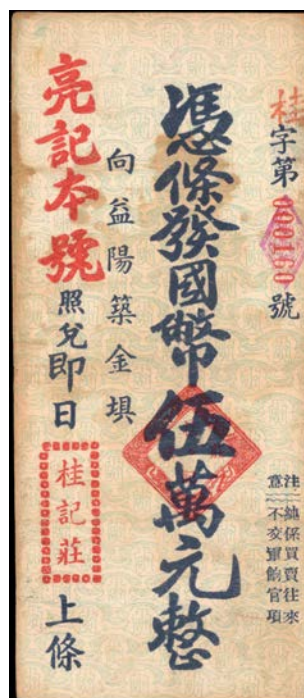 桂字第000160號
憑條發國幣伍萬元整
注意
純保買賣往來
不交軍餉官項
向益陽築金垻
亮記本號照兌即日
桂記莊
上條